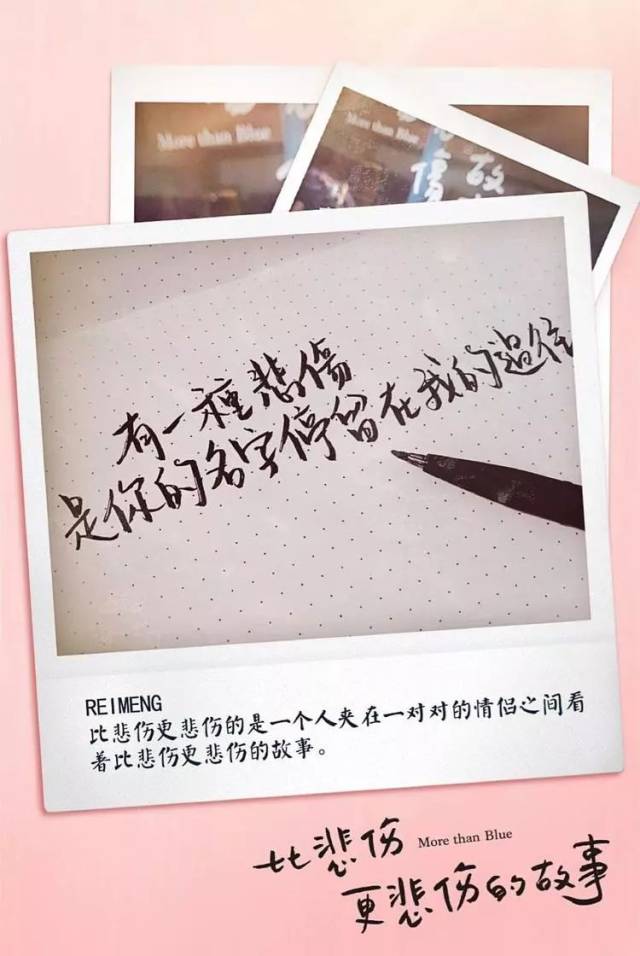 More than Blue
More than Blue
故
傷
有一種悲傷
是你的名字停留在我的過往
REIMENG
比悲伤更悲伤的是一个人夹在一对对的情侣之间看
着比悲伤更悲伤的故事。
比悲伤
More than Blue
更悲伤的故事